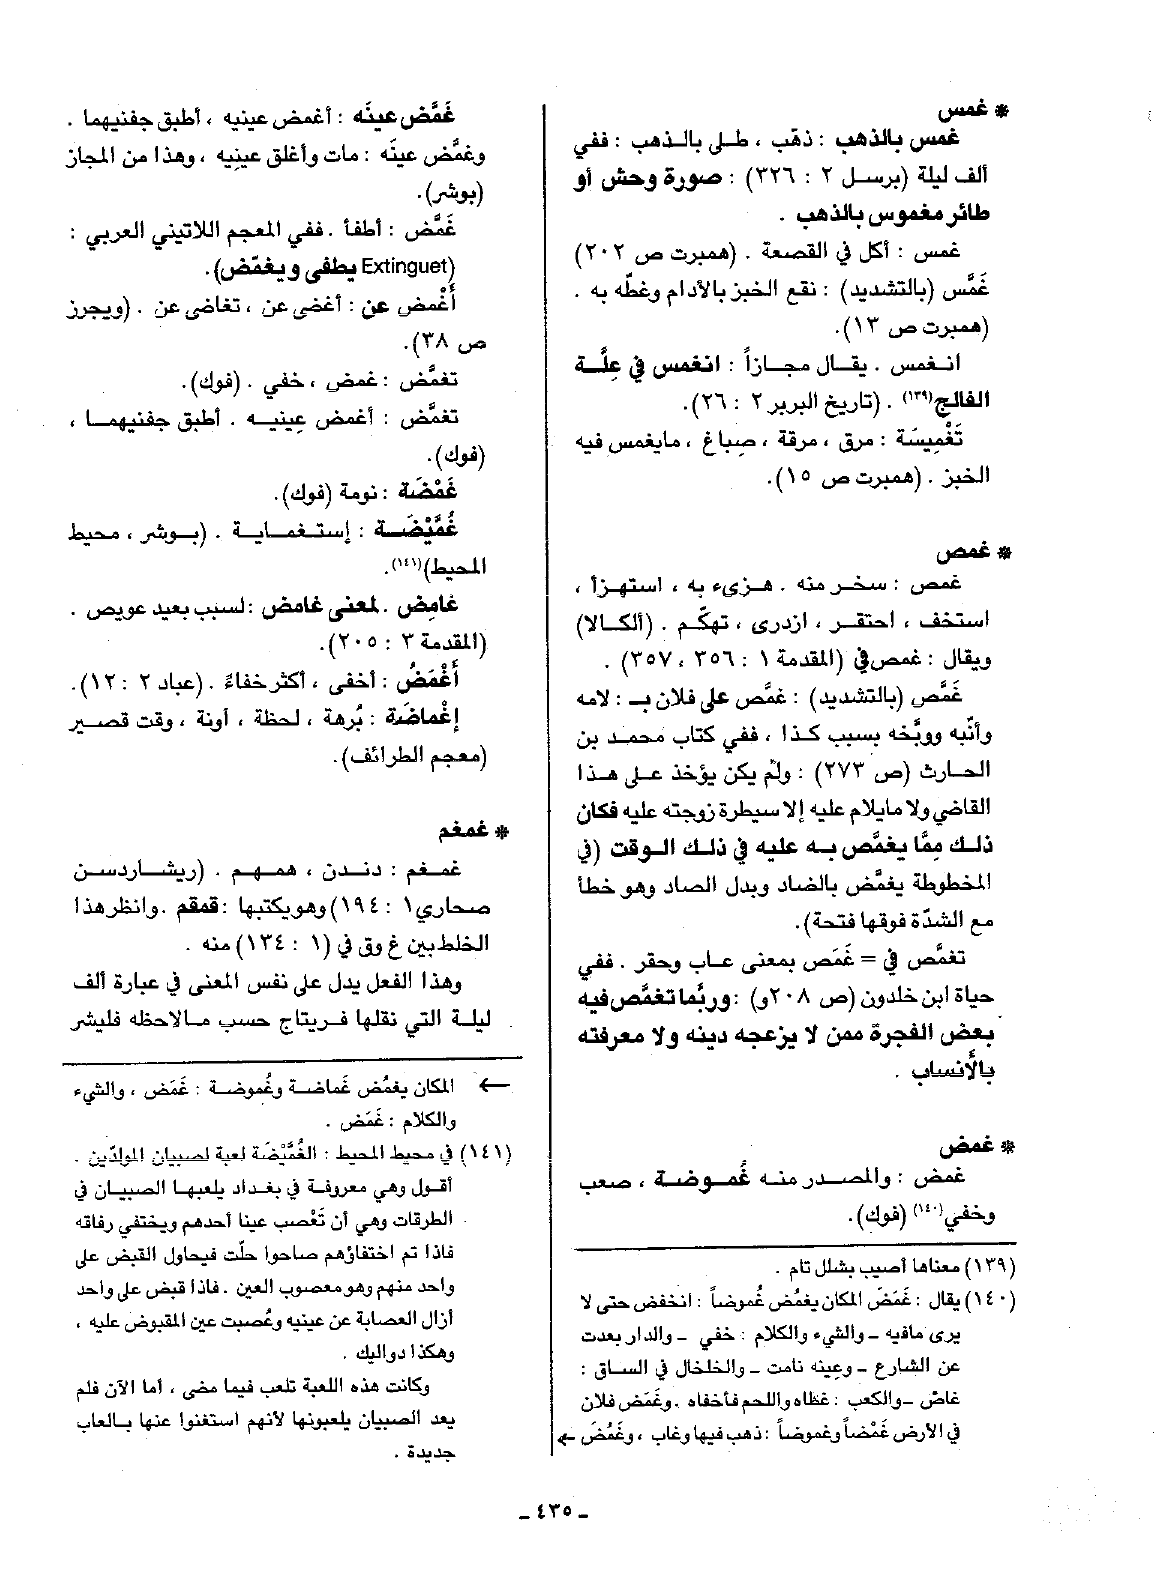 * غمس
غمس بالذهب : ذهّب ، طلى بالذهب : ففي
ألف ليلة (برسل ٢ : ٣٢٦) : صورة وحش أو
طائر مغموس بالذهب .
غمس : أكل في القصعة . (همبرت ص ٢٠٢)
غَمَّس (بالتشديد) : نقع الخبز بالأدام وغطّه به .
(همبرت ص ١٣).
انغمس . يقال مجازاً : انغمس في عِلَّة
الفالج(١٣٩) . (تاريخ البربر ٢ : ٢٦).
تَغْمِيسَة : مرق ، مرقة ، صباغ ، مايغمس فيه
الخبز . (همبرت ص ١٥).
* غمص
غمص : سخر منه . هزىء به ، استهزأ ،
استخف ، احتقر ، ازدرى ، تهكّم . (ألكالا)
ويقال : غمص في (المقدمة ١ : ٣٥٦ ، ٣٥٧) .
غَمَّص (بالتشديد) : غمَّص على فلان بـ : لامه
وأنّبه ووبَّخه بسبب كذا ، ففي كتاب محمد بن
الحارث (ص ٢٧٣) : ولم يكن يؤخذ على هذا
القاضي ولا مايلام عليه إلا سيطرة زوجته عليه فكان
ذلك مِمَّا يغمَّص به عليه في ذلك الوقت (في
المخطوطة يغمَّض بالضاد وبدل الصاد وهو خطأ
مع الشدّة فوقها فتحة).
تغمَّص في = غَمَص بمعنى عاب وحقر . ففي
حياة ابن خلدون (ص ٢٠٨و) : وربَّما تغمَّص فيه
بعض الفجرة ممن لا يزعجه دينه ولا معرفته
بالأنساب .
* غمض
غمض : والمصدر منه غُموضة ، صعب
وخفي(١٤٠) (فوك).
(١٣٩) معناها أصيب بشلل تام .
(١٤٠) يقال : غَمَضَ المكان يغمُض غُموضاً : انخفض حتى لا
يرى مافيه ــ والشيء والكلام : خفي ــ والدار بعدت
عن الشارع ــ وعينه نامت ــ والخلخال في الساق :
غاصّ ــ والكعب : غطاه واللحم فأخفاه . وغَمَض فلان
في الأرض غَمْضاً وغموضاً : ذهب فيها وغاب ، وغَمُضَ ←
غَمَّض عينَه : أغمض عينيه ، أطبق جفنيهما .
وغمَّض عينَه : مات وأغلق عينيه ، وهذا من المجاز
(بوشر).
غَمَّض : أطفأ . ففي المعجم اللاتيني العربي :
(Extinguet يطفى ويغمّض).
أَغْمض عن : أغضى عن ، تغاضى عن . (ويجرز
ص ٣٨).
تغمَّض : غمض ، خفي . (فوك).
تغمَّض : أغمض عينيه . أطبق جفنيهما ،
(فوك).
غَمْضَة : نومة (فوك).
غُمَّيْضَة : إستغماية . (بوشر ، محيط
المحيط)(١٤١).
غامِض . لمعنى غامض : لسبب بعيد عويص .
(المقدمة ٣ : ٢٠٥).
أَغْمَضُ : أخفى ، أكثر خفاءً . (عباد ٢ : ١٢).
إغْماضَة : بُرهة ، لحظة ، أونة ، وقت قصير
(معجم الطرائف).
* غمغم
غمغم : دندن ، همهم . (ريشاردسن
صحارى ١ : ١٩٤) وهو يكتبها : قمقم . وانظر هذا
الخلط بين غ وق في (١ : ١٣٤) منه .
وهذا الفعل يدل على نفس المعنى في عبارة ألف
ليلة التي نقلها فريتاج حسب مالاحظه فليشر
← المكان يغمُض غَماضة وغُموضة : غَمَض ، والشيء
والكلام : غَمَض .
(١٤١) في محيط المحيط : الغُمَّيْضَة لعبة لصبيان المولدّين .
أقول وهي معروفة في بغداد يلعبها الصبيان في
الطرقات وهي أن تَعْصب عينا أحدهم ويختفي رفاقه
فاذا تم اختفاؤهم صاحوا حلّت فيحاول القبض على
واحد منهم وهو معصوب العين . فاذا قبض على واحد
أزال العصابة عن عينيه وعُصبت عين المقبوض عليه ،
وهكذا دواليك .
وكانت هذه اللعبة تلعب فيما مضى ، أما الآن فلم
يعد الصبيان يلعبونها لأنهم استغنوا عنها بالعاب
جديدة .
ــ ٤٣٥ ــ